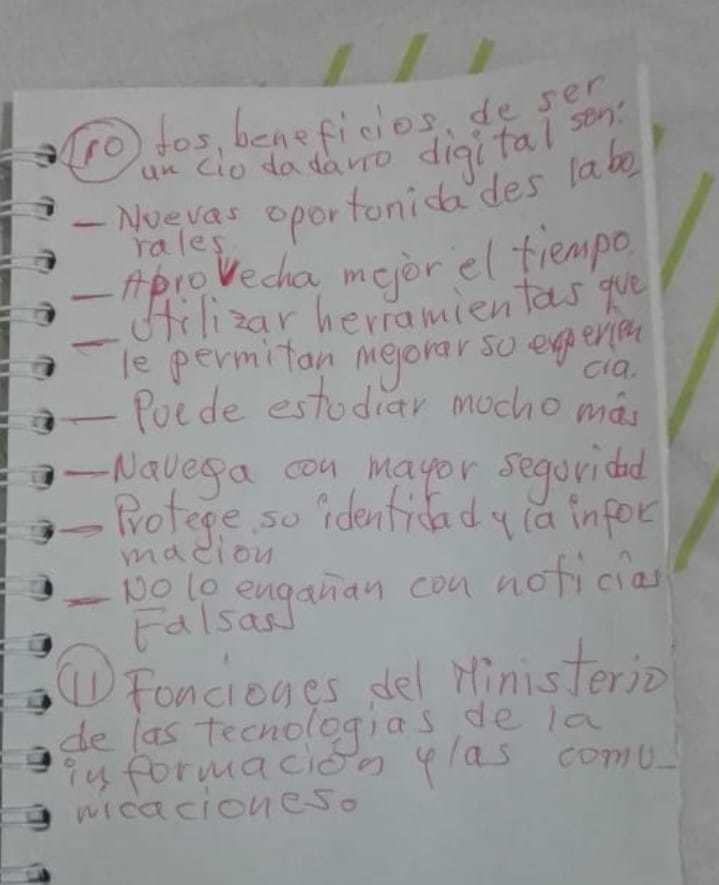 10 Los beneficios de ser
un ciodadano digital son:
- Nuevas oportonidades labo
rales
- Aprovecha mejor el tiempo.
- Utilizar herramientas que
le permitan mejorar so experien
cia.
- Poede estodiar mocho más
- Navega con mayor seguridad
- Protege so identidad y la infor
macion
- No lo engañan con noticias
Falsas
11 Fonciones del Ministerio
de las tecnologias de la
información y las como_
nicaciones.